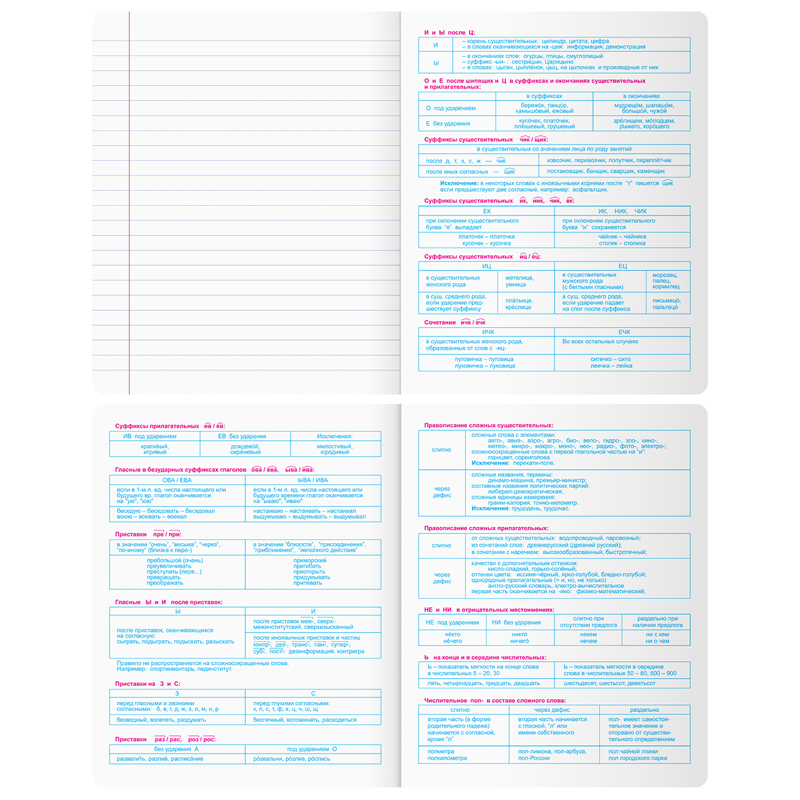 И и Ы после Ц:
И
– корень существительных: цилиндр, цитата, цифра
– в словах оканчивающихся на -ция: информация, демонстрация
Ы
– в окончаниях слов: огурцы, птицы, смуглолицый
– суффикс -ын- : сестрицын, Царицыно
– в словах: цыган, цыплёнок, цыц, на цыпочках и производные от них
О и Е после шипящих и Ц в суффиксах и окончаниях существительных
и прилагательных:
в суффиксах
в окончаниях
О под ударением
бережок, танцор,
камышовый, ежовый
мудрецом, шалашом,
большой, чужой
Е без ударения
кусочек, платочек,
плюшевый, грушевый
зрелищем, молодцем,
рыжего, хорошего
Суффиксы существительных чик / щик:
в существительных со значением лица по роду занятий
после д, т, з, с, ж — чик
извозчик, перевозчик, попутчик, переплётчик
после иных согласных — щик
постановщик, банщик, сварщик, каменщик
Исключение: в некоторых словах с иноязычными корнями после "т" пишется щик
если предшествуют две согласные, например: асфальтщик.
Суффиксы существительных ик, ник, чик, ек:
ЕК
ИК, НИК, ЧИК
при склонении существительного
буква "е" выпадает
при склонении существительного
буква "и" сохраняется
платочек – платочка
кусочек – кусочка
чайник – чайника
столик – столика
Суффиксы существительных иц / ец:
ИЦ
ЕЦ
в существительных
женского рода
метелица,
умница
в существительных
мужского рода
(с беглыми гласными)
морозец,
палец,
кормилец
в сущ. среднего рода,
если ударение пред-
шествует суффиксу
платьице,
креслице
в сущ. среднего рода,
если ударение падает
на слог после суффикса
письмецо,
пальтецо
Сочетания ичк / ечк
ИЧК
ЕЧК
в существительных женского рода,
образованных от слов с -иц-
Во всех остальных случаях
пуговичка – пуговица
луковичка – луковица
ситечко – сито
леечка – лейка
Суффиксы прилагательных ив / ев:
ИВ под ударением
ЕВ без ударения
Исключения:
красивый,
игривый
дождевой,
сиреневый
милостивый,
юродивый
Гласные в безударных суффиксах глаголов ова / ева, ыва / ива:
ОВА / ЕВА
ЫВА / ИВА
если в 1-м л. ед. числа настоящего или
будущего вр. глагол оканчивается
на "ую", "юю"
если в 1-м л. ед. числа настоящего или
будущего времени глагол оканчивается
на "ываю", "иваю"
беседую – беседовать – беседовал
воюю – воевать – воевал
настаиваю – настаивать – настаивал
выдумываю – выдумывать – выдумывал
Приставки пре / при:
в значении "очень", "весьма", "через",
"по-иному" (близка к пере-)
в значении "близости", "присоединения",
"приближения", "неполного действия"
пребольшой (очень)
преувеличивать
преступать (пере...)
превращать
преображать
приморский
пригибать
приоткрыть
придумывать
прилевать
Гласные Ы и И после приставок:
Ы
И
после приставок, оканчивающихся
на согласную:
сыграть, подыграть, подыскать, разыскать
после приставок меж-, сверх-:
межинститутский, сверхизысканный
после иноязычных приставок и частиц
контр-, дез-, транс-, пан-, супер-,
суб-, пост-: дезинформация, контригра
Правило не распространяется на сложносокращенные слова.
Например: спортинвентарь, пединститут.
Приставки на З и С:
З
С
перед гласными и звонкими
согласными: б, в, г, д, ж, з, л, м, н, р
перед глухими согласными:
к, п, с, т, ф, х, ц, ч, ш, щ
безводный, взлететь, раздумать
беспечный, вспоминать, расходиться
Приставки раз / рас, роз / рос:
без ударения А
под ударением О
развалить, разлив, расписание
розвальни, розлив, роспись
Правописание сложных существительных:
слитно
сложные слова с элементами:
авто-, авиа-, аэро-, агро-, био-, вело-, гидро-, зоо-, кино-,
метео-, микро-, макро-, моно-, нео-, радио-, фото-, электро-;
сложносокращенные слова с первой глагольной частью на "и":
горицвет, сорвиголова.
Исключение: перекати-поле.
через
дефис
сложные названия, термины:
динамо-машина, премьер-министр;
составные названия политических партий:
либерал-демократическая;
сложные единицы измерения:
грамм-калория, тонно-километр.
Исключения: трудодень, трудочас.
Правописание сложных прилагательных:
слитно
от сложных существительных: водопроводный, паровозный;
из сочетания слов: древнерусский (древний русский);
в сочетании с наречием: высокообразованный, быстротечный;
через
дефис
качество с дополнительным оттенком:
кисло-сладкий, горько-солёный;
оттенки цвета: иссиня-чёрный, ярко-голубой, бледно-голубой;
однородные прилагательные (= и, но, не только):
англо-русский словарь, электро-вычислительное
первая часть оканчивается на -ико: физико-математический;
НЕ и НИ в отрицательных местоимениях:
НЕ под ударением
НИ без ударения
слитно при
отсутствии предлога
раздельно при
наличии предлога
некто
нечего
никто
ничего
некем
нечем
ни с кем
ни о чем
Ь на конце и в середине числительных:
Ь – показатель мягкости на конце слова
в числительных 5 – 20, 30
Ь – показатель мягкости в середине
слова в числительных 50 – 80, 500 – 900
пять, четырнадцать, тридцать, двадцать
шестьдесят, шестьсот, девятьсот
Числительное пол- в составе сложного слова:
слитно
через дефис
раздельно
вторая часть (в форме
родительного падежа)
начинается с согласной,
кроме "л"
вторая часть начинается
с гласной, "л" или
имени собственного
пол- имеет самостоя-
тельное значение и
оторвано от существи-
тельного определением
полметра
полкилометра
пол-лимона, пол-арбуза,
пол-России
пол чайной ложки
пол городского парка